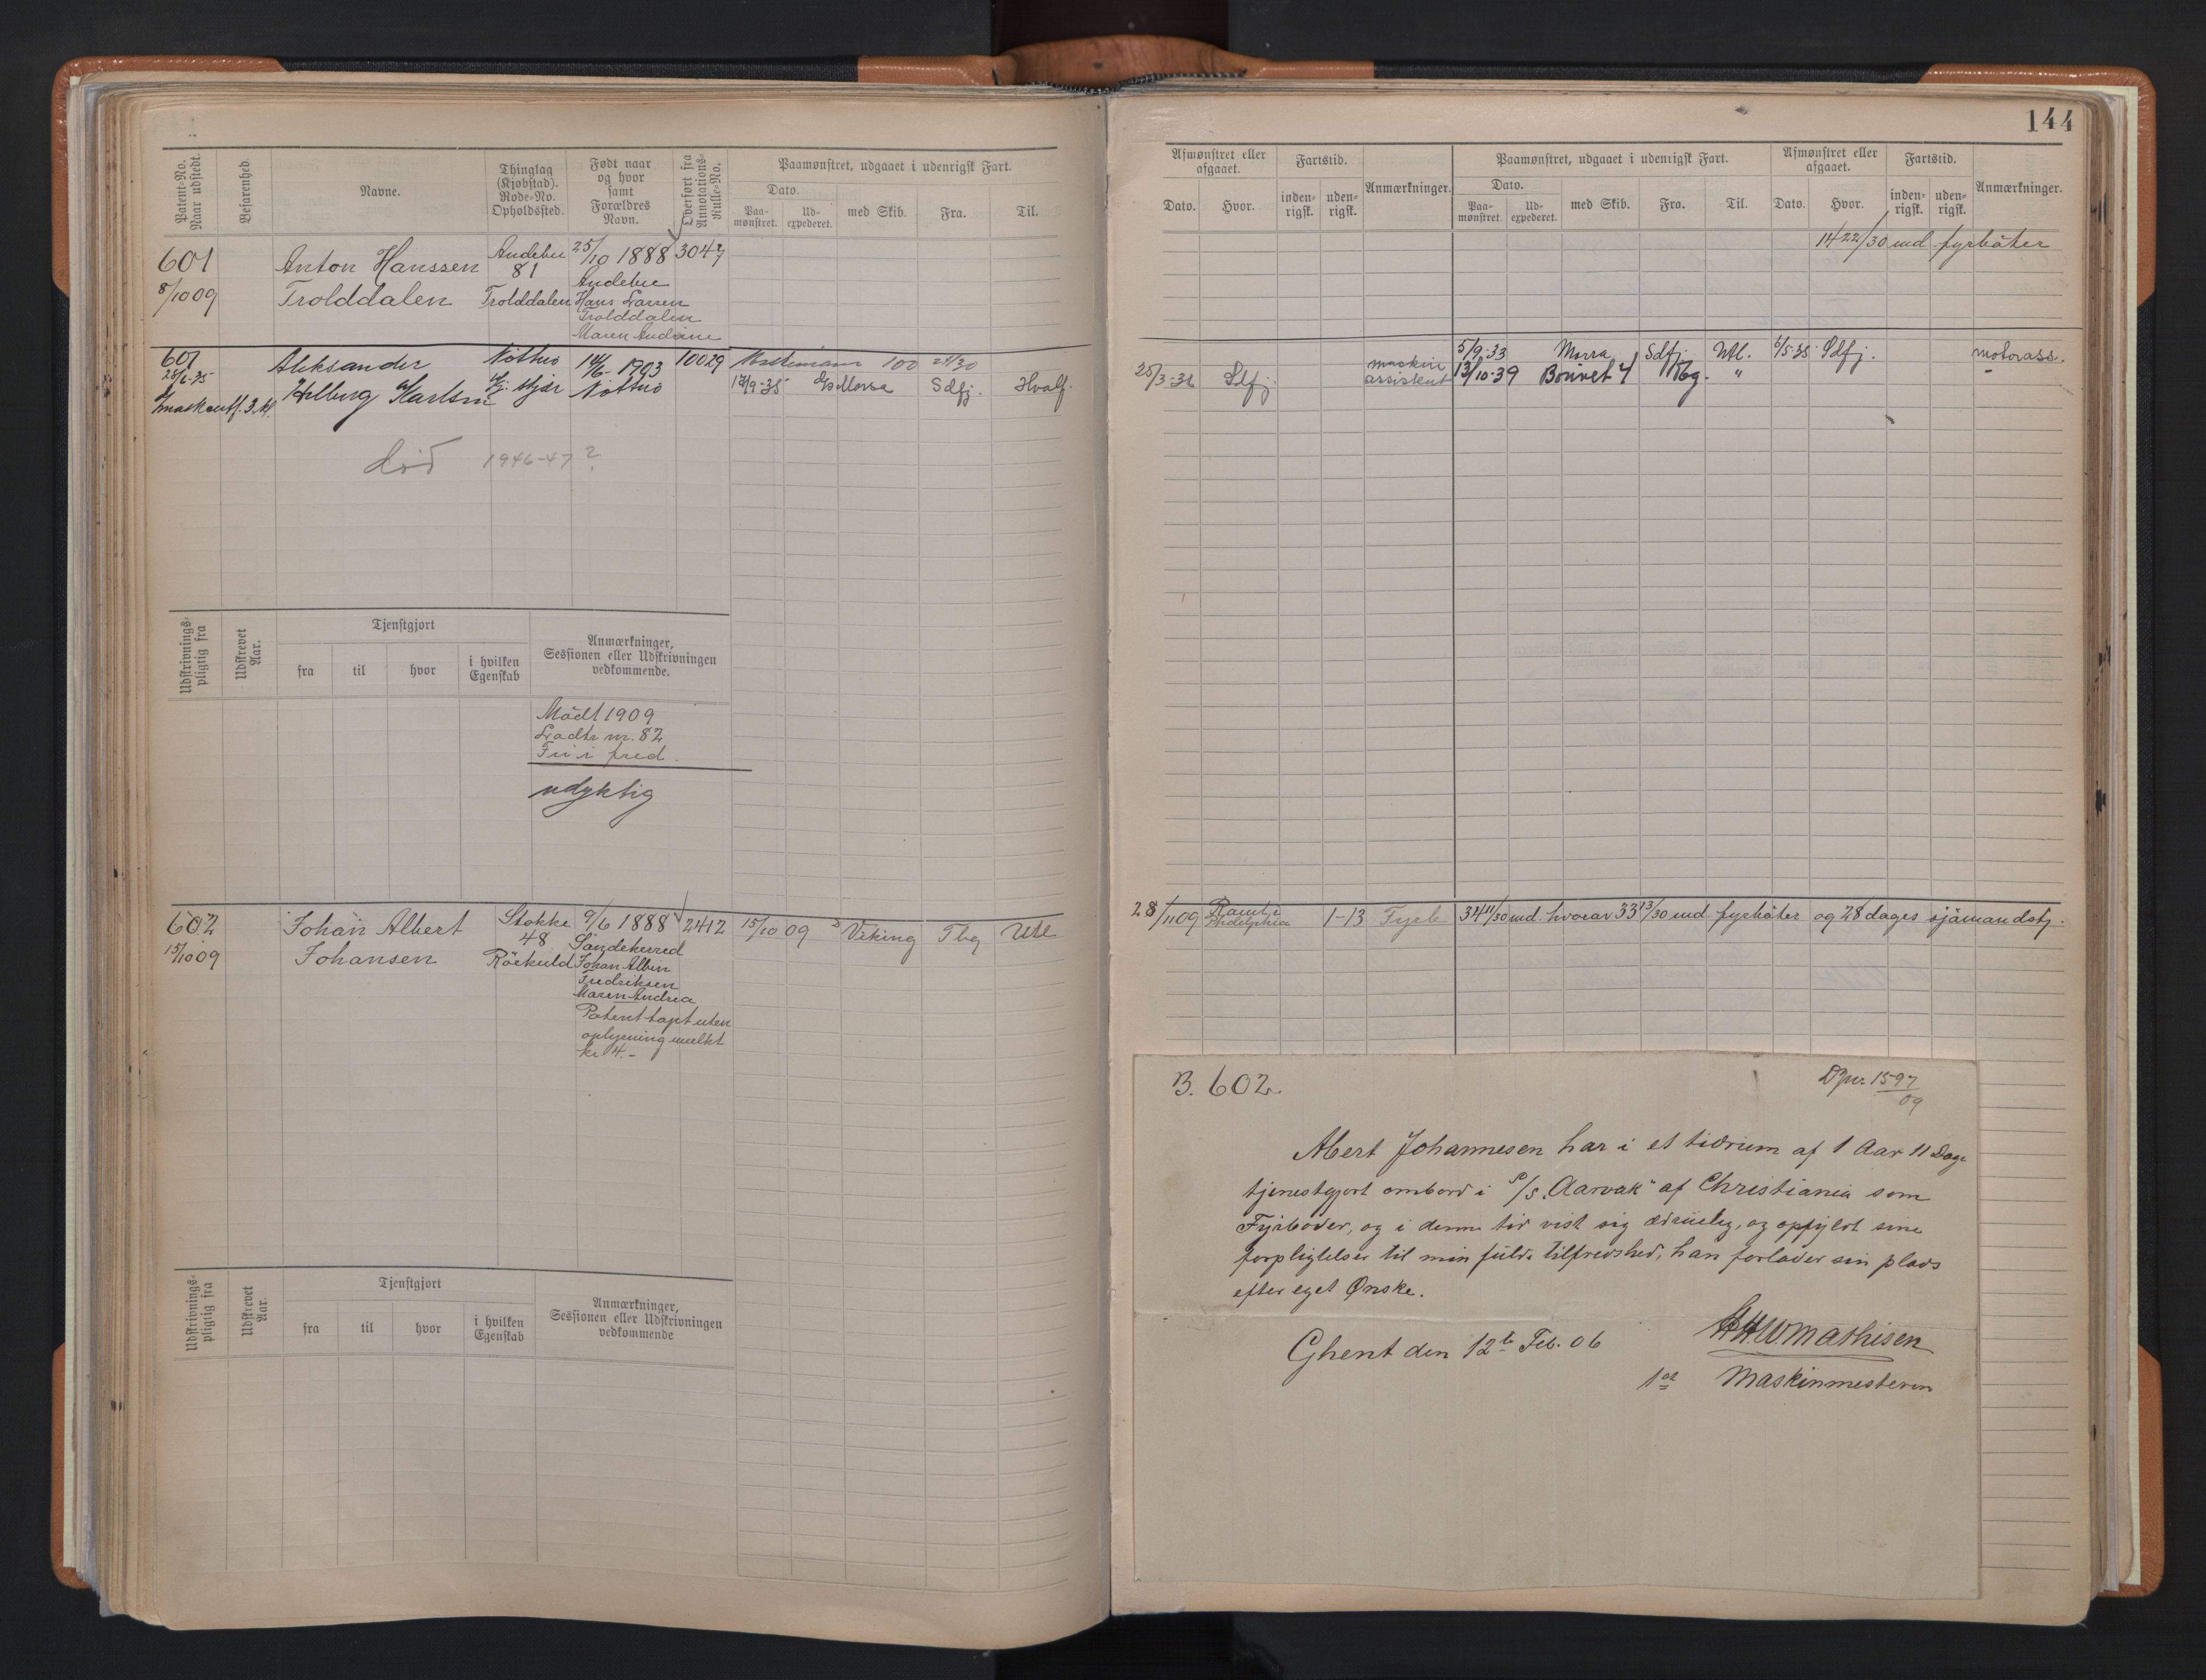 144
Patent-No. Naar udstedt.
Befarenhed.
Navne.
Thinglag (Kjøbstad). Rode-No. Opholdssted.
Født naar og hvor samt Forældres Navn.
Overført fra Annotations-Rulle-No.
Paamønstret, udgaaet i udenrigsk Fart.
Dato.
Paa-mønstret.
Ud-expederet.
med Skib.
Fra.
Til.
601
8/10 09
Anton Hanssen
Trolddalen
Andebu
81
Trolddalen
25/10 1888
Andebu
Hans Larsen
Trolddalen
Maren Andrine
3047
601
Aleksander
Karlsen
Nøtterø
14/6-1903
Nøtterø
10029
100
17/9-35
Morsa
Sdfj.
Hvalf.
død 1946-47?
Udskrivnings-pligtig fra
Udskrevet Aar.
Tjenstgjort
fra
til
hvor
i hvilken Egenskab
Anmærkninger, Sessionen eller Udskrivningen vedkommende.
Mødt 1909
Ladtr nr. 82
Fri i fred.
udyktig
602
15/10 09
Johan Albert
Johansen
Stokke
48
Röekuld
9/6 1888
Sandeherred
Johan Albin
Fredriksen
Maren Andrea
Patent tapt uten
oplysning mulkt
kr 4.-
2412
15/10 09
Viking
Tbg
Utl
Udskrivnings-pligtig fra
Udskrevet Aar.
Tjenstgjort
fra
til
hvor
i hvilken Egenskab
Anmærkninger, Sessionen eller Udskrivningen vedkommende
Afmønstret eller afgaaet.
Dato.
Hvor.
Fartstid.
inden-rigsk.
uden-rigsk.
Anmærkninger.
Paamønstret, udgaaet i udenrigsk Fart.
Dato.
Paa-mønstret.
Ud-expederet.
med Skib.
Fra.
Til.
Afmønstret eller afgaaet.
Dato.
Hvor.
Fartstid.
inden-rigsk.
uden-rigsk.
Anmærkninger.
14 22/30 md fyrbøter
5/9-33 Morsa Sdfj. Utl. 6/5-35 Sdfj. motorass.
25/3-36 Sdfj. maskin assistent 13/10-39 Bouvet 4 Tbg. "
28/11 09 1-13 Fyrb 34 11/30 md hvorav 33 13/30 md fyrbøter og 28 dages sjømandstj.
B. 602.
DJnr. 1597/09
Albert Johannesen har i et tidrum af 1 Aar 11 Dage
tjenestgjort ombord i S/S. "Aarvak" af Christiania som
Fyrbøder, og i denne tid vist sig ædruelig, og opfyldt sine
forpligtelser til min fulde tilfredshed, han forlader sin plads
efter eget Ønske.
Ghent den 12te Feb. 06
Mathisen
1ste Maskinmesteren